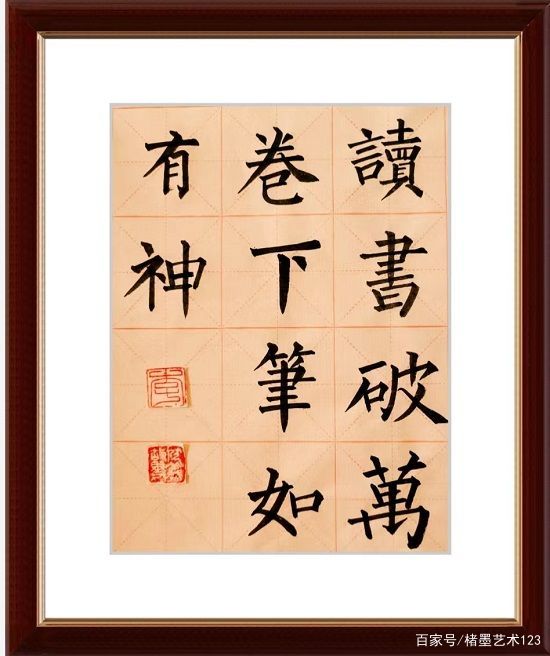 讀書破萬
卷下筆如
有神
百家号/楮墨艺术123